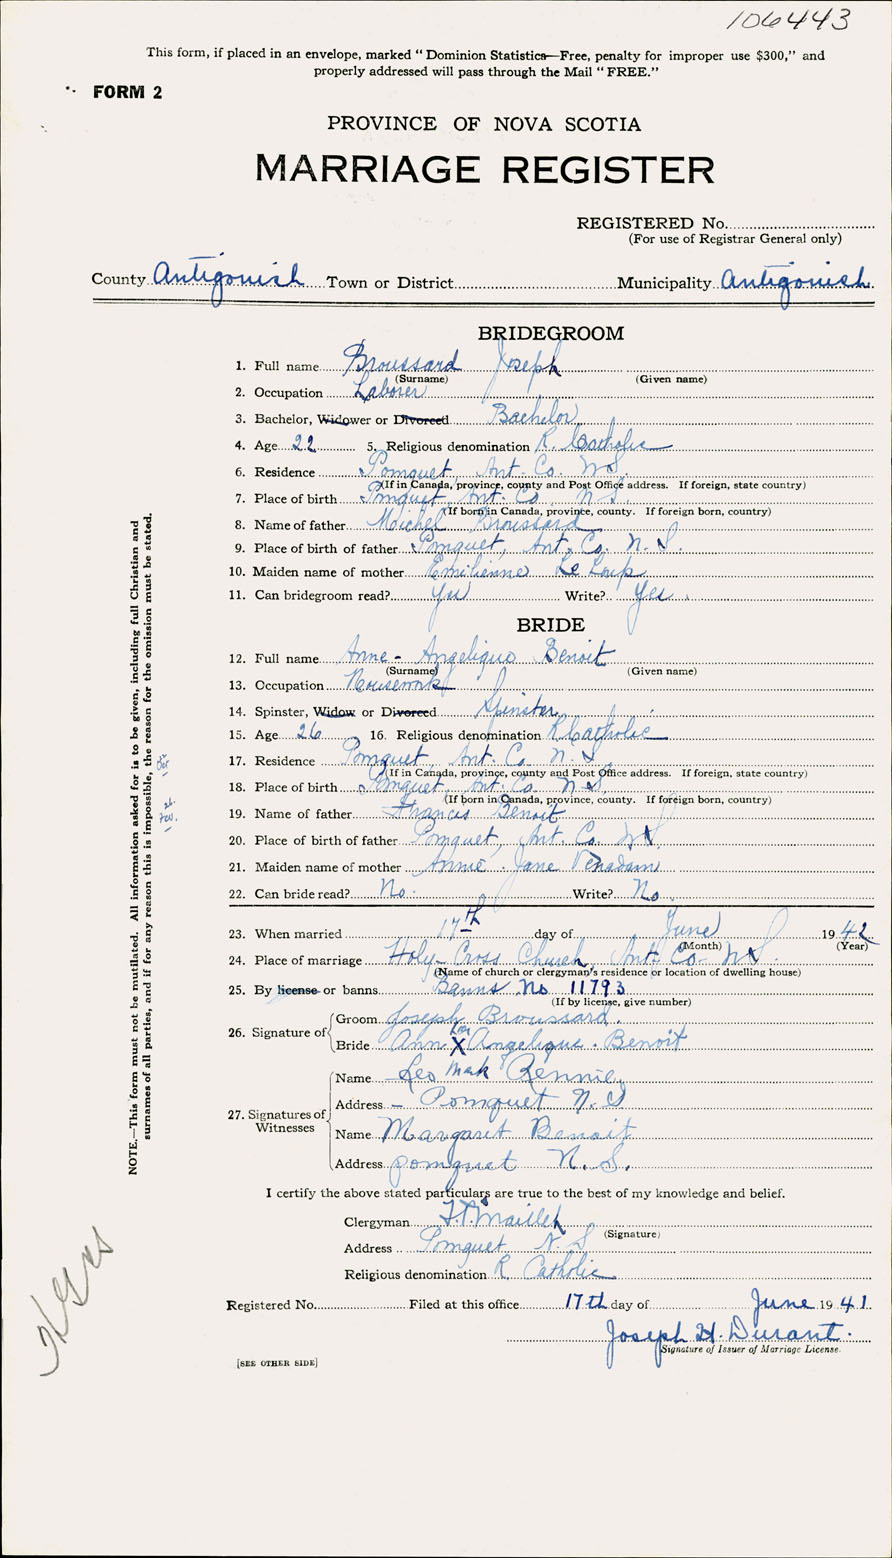 106443
This form, if placed in an envelope, marked "Dominion Statistics—Free, penalty for improper use $300," and
properly addressed will pass through the Mail "FREE."
FORM 2
PROVINCE OF NOVA SCOTIA
MARRIAGE REGISTER
REGISTERED No.
(For use of Registrar General only)
County Antigonish Town or District Municipality Antigonish
BRIDEGROOM
1. Full name Broussard Joseph
(Surname) (Given name)
2. Occupation Laborer
3. Bachelor, Widower or Divorced Bachelor
4. Age 22 5. Religious denomination R. Catholic
6. Residence Pomquet, Ant. Co. N S.
(If in Canada, province, county and Post Office address. If foreign, state country)
7. Place of birth Pomquet, Ant. Co. N S.
(If born in Canada, province, county. If foreign born, country)
8. Name of father Moichel Broussard
9. Place of birth of father Pomquet, Ant. Co. N. S.
10. Maiden name of mother Emilienne Le Loup
11. Can bridegroom read? Yes Write? Yes.
BRIDE
12. Full name Anne - Angelique Benoit
(Surname) (Given name)
13. Occupation Housework
14. Spinster, Widow or Divorced Spinster
15. Age 26 16. Religious denomination R Catholic
17. Residence Pomquet, Ant. Co. N. S.
(If in Canada, province, county and Post Office address. If foreign, state country)
18. Place of birth Pomquet, Ant. Co. N S.
(If born in Canada, province, county. If foreign born, country)
19. Name of father Francis Benoit
20. Place of birth of father Pomquet, Ant. Co. N S.
21. Maiden name of mother Annie Jane
22. Can bride read? No. Write? No.
23. When married 17th day of June 1942
(Month) (Year)
24. Place of marriage Holy-Cross Church, Ant. Co- N S.
(Name of church or clergyman's residence or location of dwelling house)
25. By license or banns Banns No 11793
(If by license, give number)
26. Signature of Groom Joseph Broussard.
Bride Ann her X Angelique. Benoit
mark
27. Signatures of Witnesses
Name Leo Rennie
Address - Pomquet N. S
Name Margaret Benoit
Address pomquet N. S.
I certify the above stated particulars are true to the best of my knowledge and belief.
Clergyman
(Signature)
Address Pomquet, N. S
Religious denomination R. Catholic
Registered No. Filed at this office 17th day of June 1941
Joseph H. Durant.
Signature of Issuer of Marriage License.
[SEE OTHER SIDE]
NOTE.—This form must not be mutilated. All information asked for is to be given, including full Christian and
surnames of all parties, and if for any reason this is impossible, the reason for the omission must be stated.